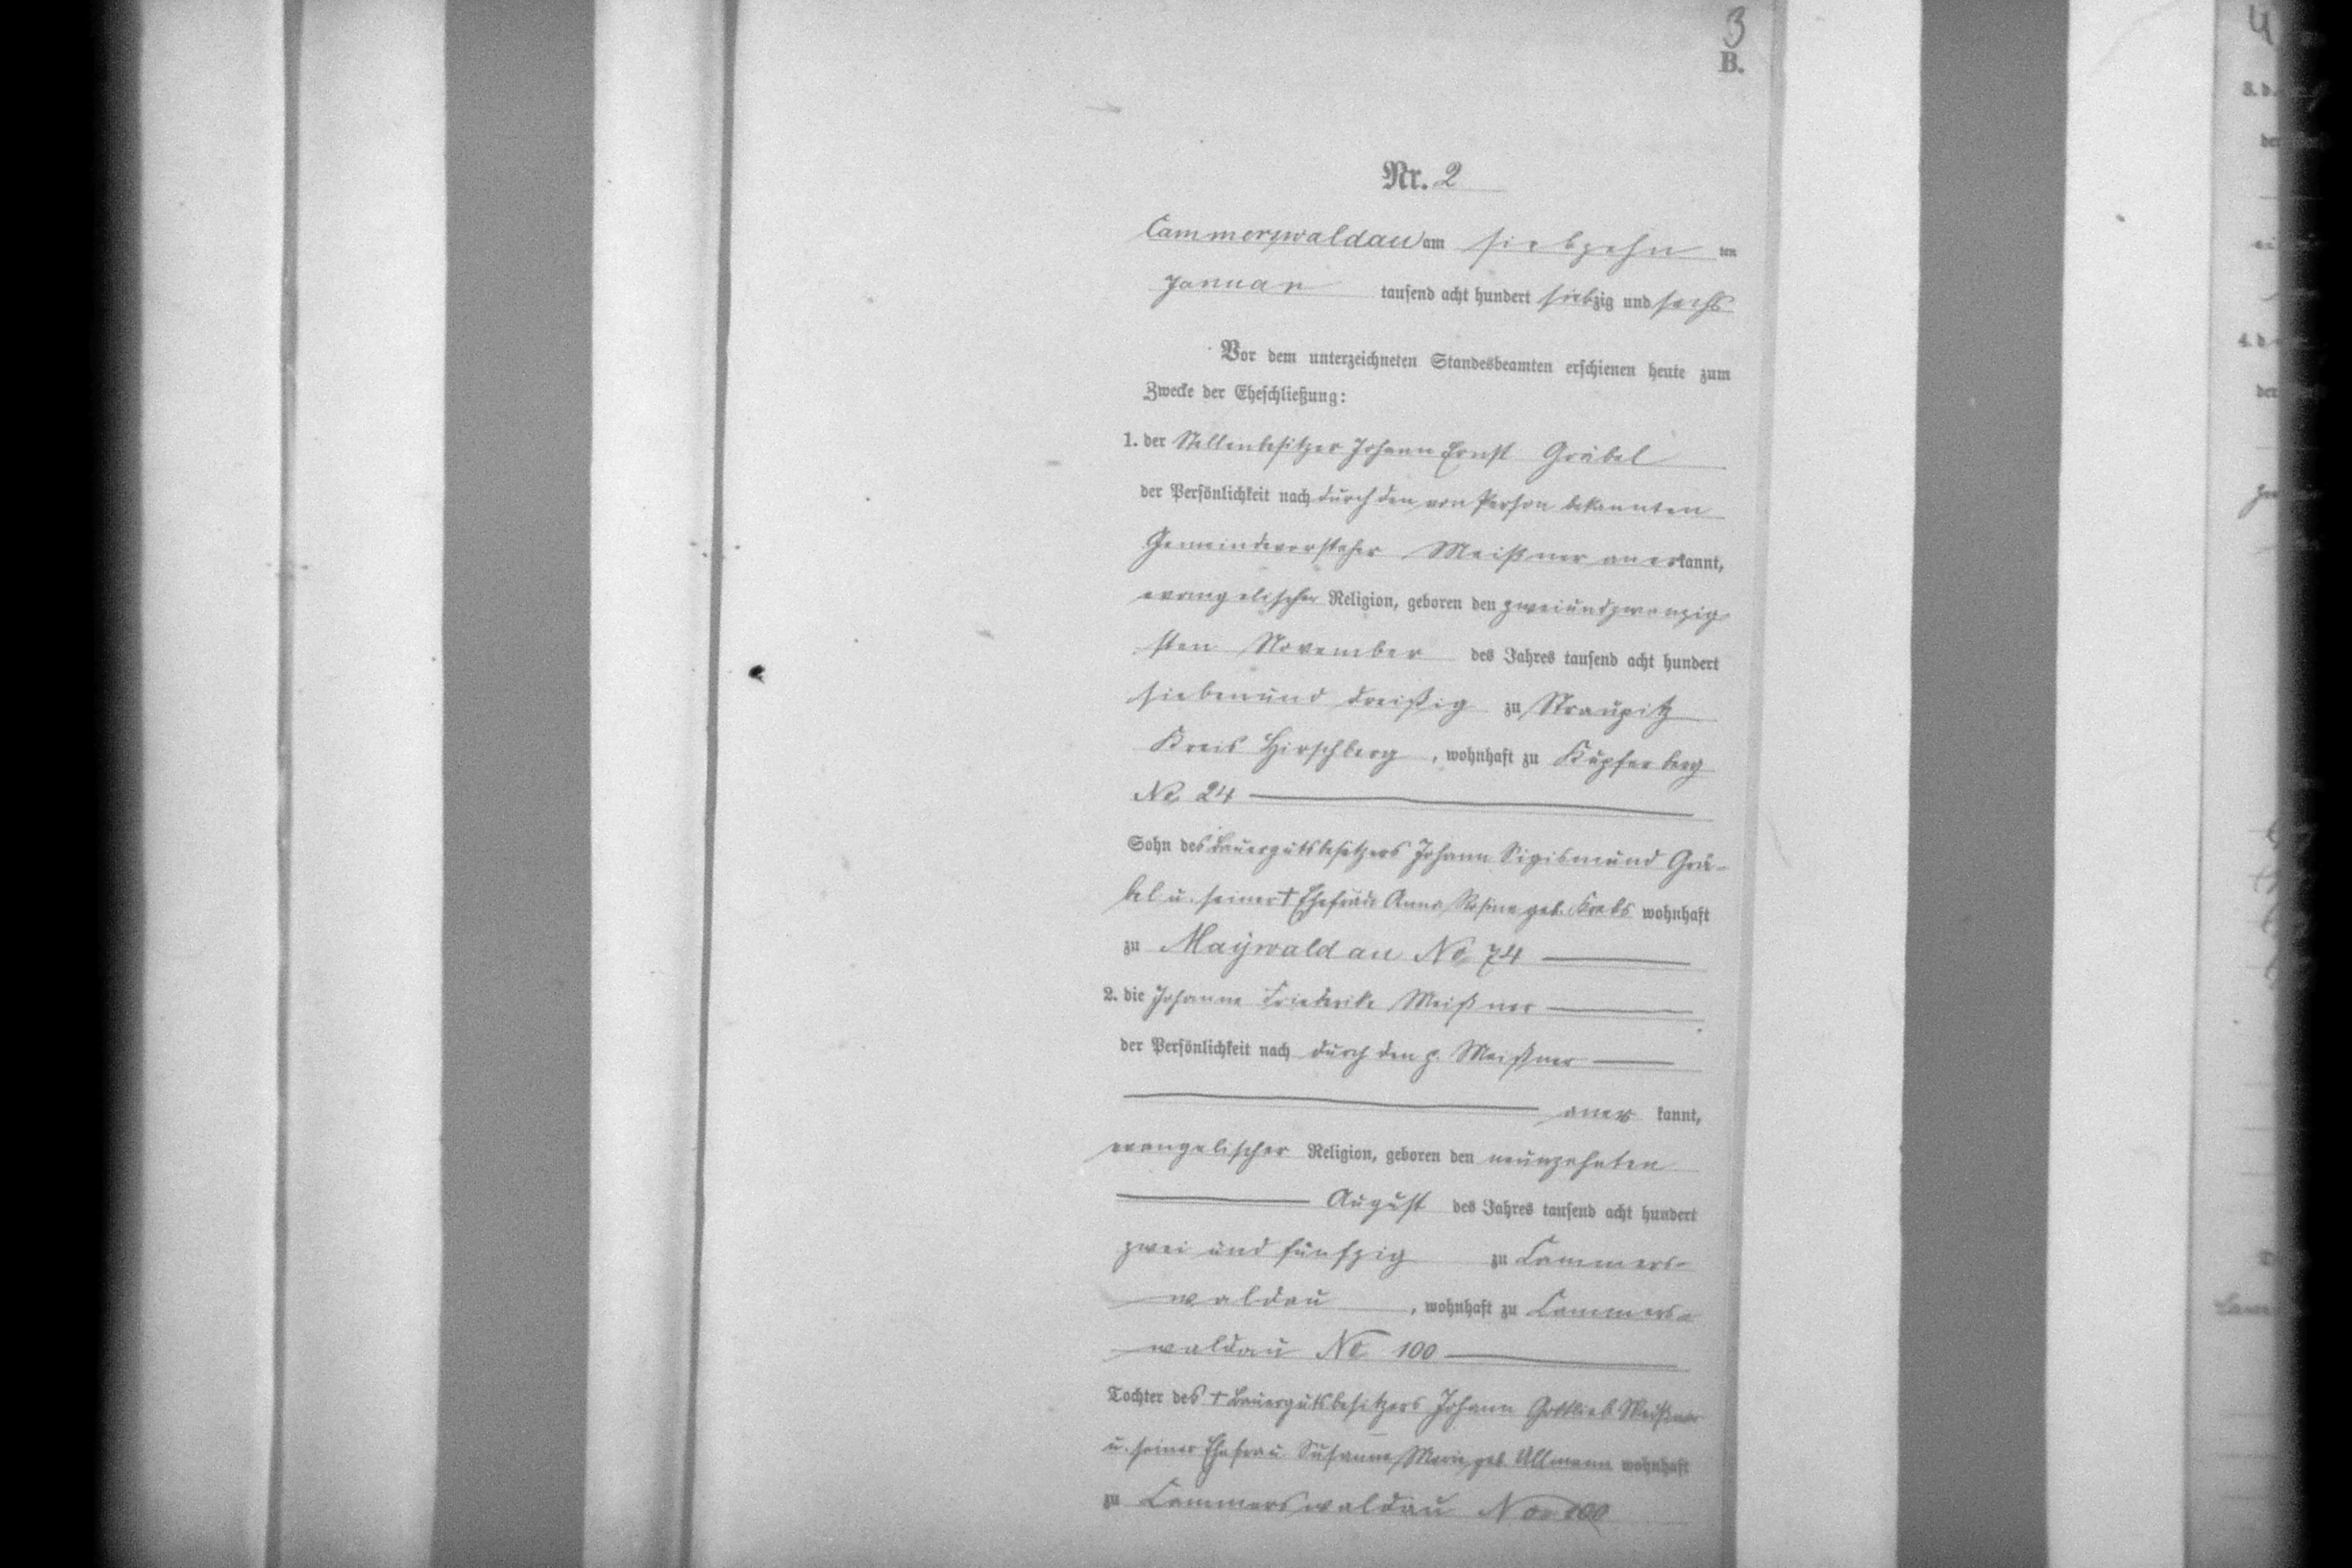 3
B.
Nr. 2
Cammerswaldau am siebzehn ten
Januar tausend acht hundert siebzig und sechs
Vor dem unterzeichneten Standesbeamten erschienen heute zum
Zwecke der Eheschließung:
1. der Stellenbesitzer Johann Ernst Gräbel
der Persönlichkeit nach durch den von Person bekannten
Gemeindevorsteher Meißner anerkannt,
evangelischer Religion, geboren den zweiundzwanzig
sten November des Jahres tausend acht hundert
siebenund dreißig zu Straupitz
Kreis Hirschberg, wohnhaft zu Kupferberg
No 24
Sohn des Bauergutsbesitzers Johann Sigismund Grä-
bel u. seiner † Ehefrau Anna Rosina geb. Krebs wohnhaft
zu Maywaldau No 74
2. die Johanne Friederike Meißner
der Persönlichkeit nach durch den p. Meißner
aner kannt,
evangelischer Religion, geboren den neunzehnten
August des Jahres tausend acht hundert
zwei und fünfzig zu Cammers-
waldau, wohnhaft zu Cammers-
waldau No 100
Tochter des † Bauergutsbesitzers Johann Gottlieb Meißner
u. seiner Ehefrau Susanne Marie geb. Ullmann wohnhaft
zu Cammerswaldau No 100
4
3. d.
der
4. d
der